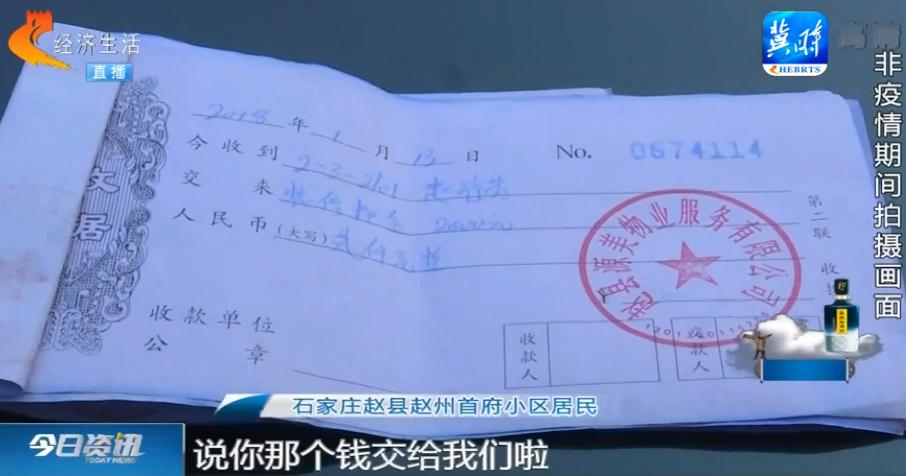 经济生活
直播
冀时
HEBRTS
高清
非疫情期间拍摄画面
2018 年 1 月 13 日 No. 0674114
今收到 2-3-2101
交来 装修押金 2000元
人民币(大写) 贰仟元整
收款单位
公章
收款人
交款人
第二联
收
赵县源美物业服务有限公司
文居
石家庄赵县赵州首府小区居民
今日资讯
TODAY NEWS
说你那个钱交给我们啦